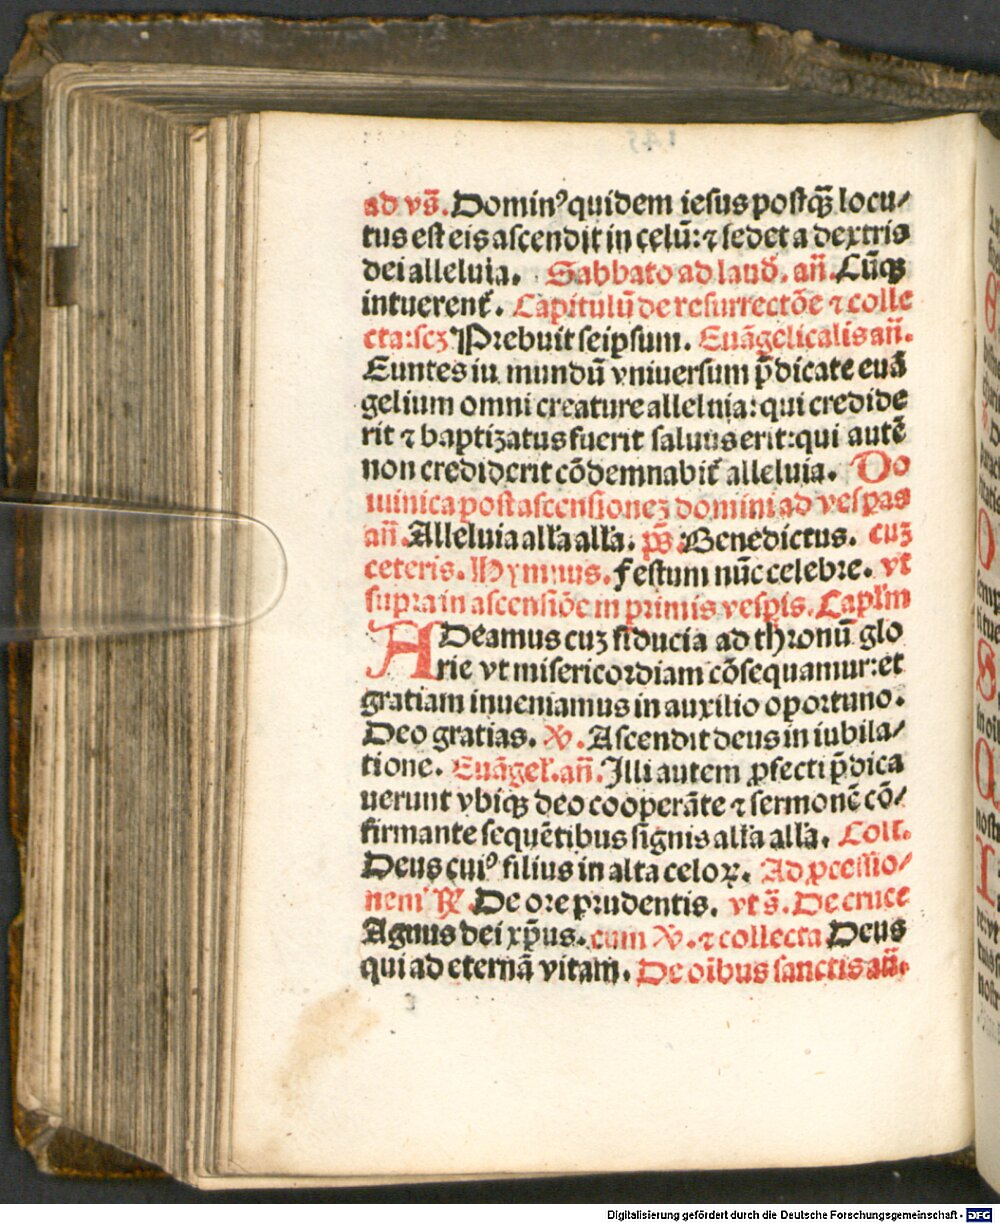 ad vs̄. Dominꝰ quidem iesus postqꝫ̄ locu⸗
tus est eis ascendit in celū: ⁊ sedet a dextris
dei alleluia. Sabbato ad laud̄. an̄. Cūqꝫ
intuerent᷑. Capitulū de resurrectōe ⁊ colle
cta: scꝫ Prebuit seipsum. Euāgelicalis an̄.
Euntes iu mundū vniuersum p̄dicate euā
gelium omni creature allelnia: qui credide
rit ⁊ baptizatus fuerit saluus erit: qui autē
non crediderit cōdemnabit᷑ alleluia. Do
minica post ascensionez domini ad vespas
an̄. Alleluia alľa alľa. ps̄. Benedictus. cuz
ceteris. Hymnus. Festum nūc celebre. vt
supra in ascensiōe in primis vespis. Capľm
ADeamus cuz fiducia ad thronū glo
rie vt misericordiam cōsequamur: et
gratiam inueniamus in auxilio oportuno.
Deo gratias. ℣. Ascendit deus in iubila⸗
tione. Euāgel᷑. an̄. Illi autem ꝓfecti p̄dica
uerunt vbiqꝫ deo cooperāte ⁊ sermonē cō⸗
firmante sequētibus signis alľa alľa. Coll.
Deus cuiꝰ filius in alta celoꝝ. Ad ꝓcessio⸗
nem ℟. De ore prudentis. vt s̄. De cruce
Agnus dei xp̄us. cum ℣. ⁊ collecta Deus
qui ad eternā vitam. De oībus sanctis an̄.
145
Digitalisierung gefördert durch die Deutsche Forschungsgemeinschaft - DFG